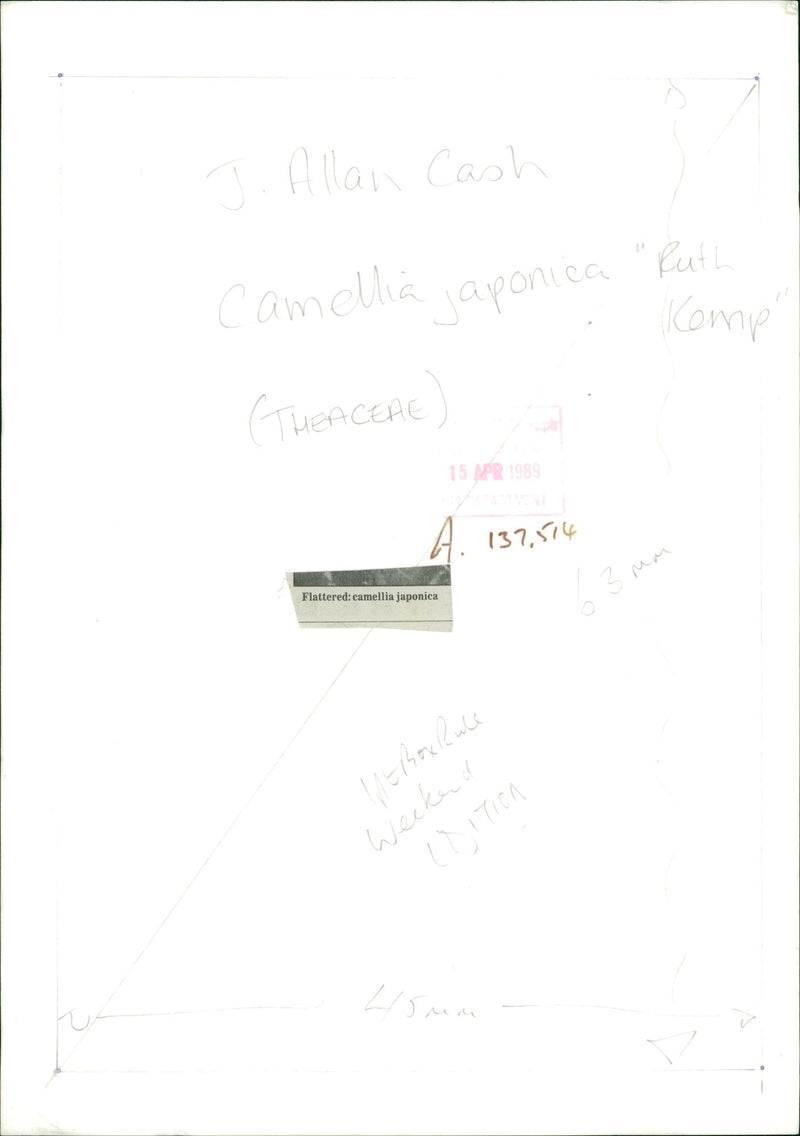 J. Allan Cash
Camellia japonica "Ruth
Kemp"
(THEACEAE)
15 APR 1989
DEPARTMENT
A. 137,514
Flattered: camellia japonica
63mm
Box Rule
Weekend
45mm